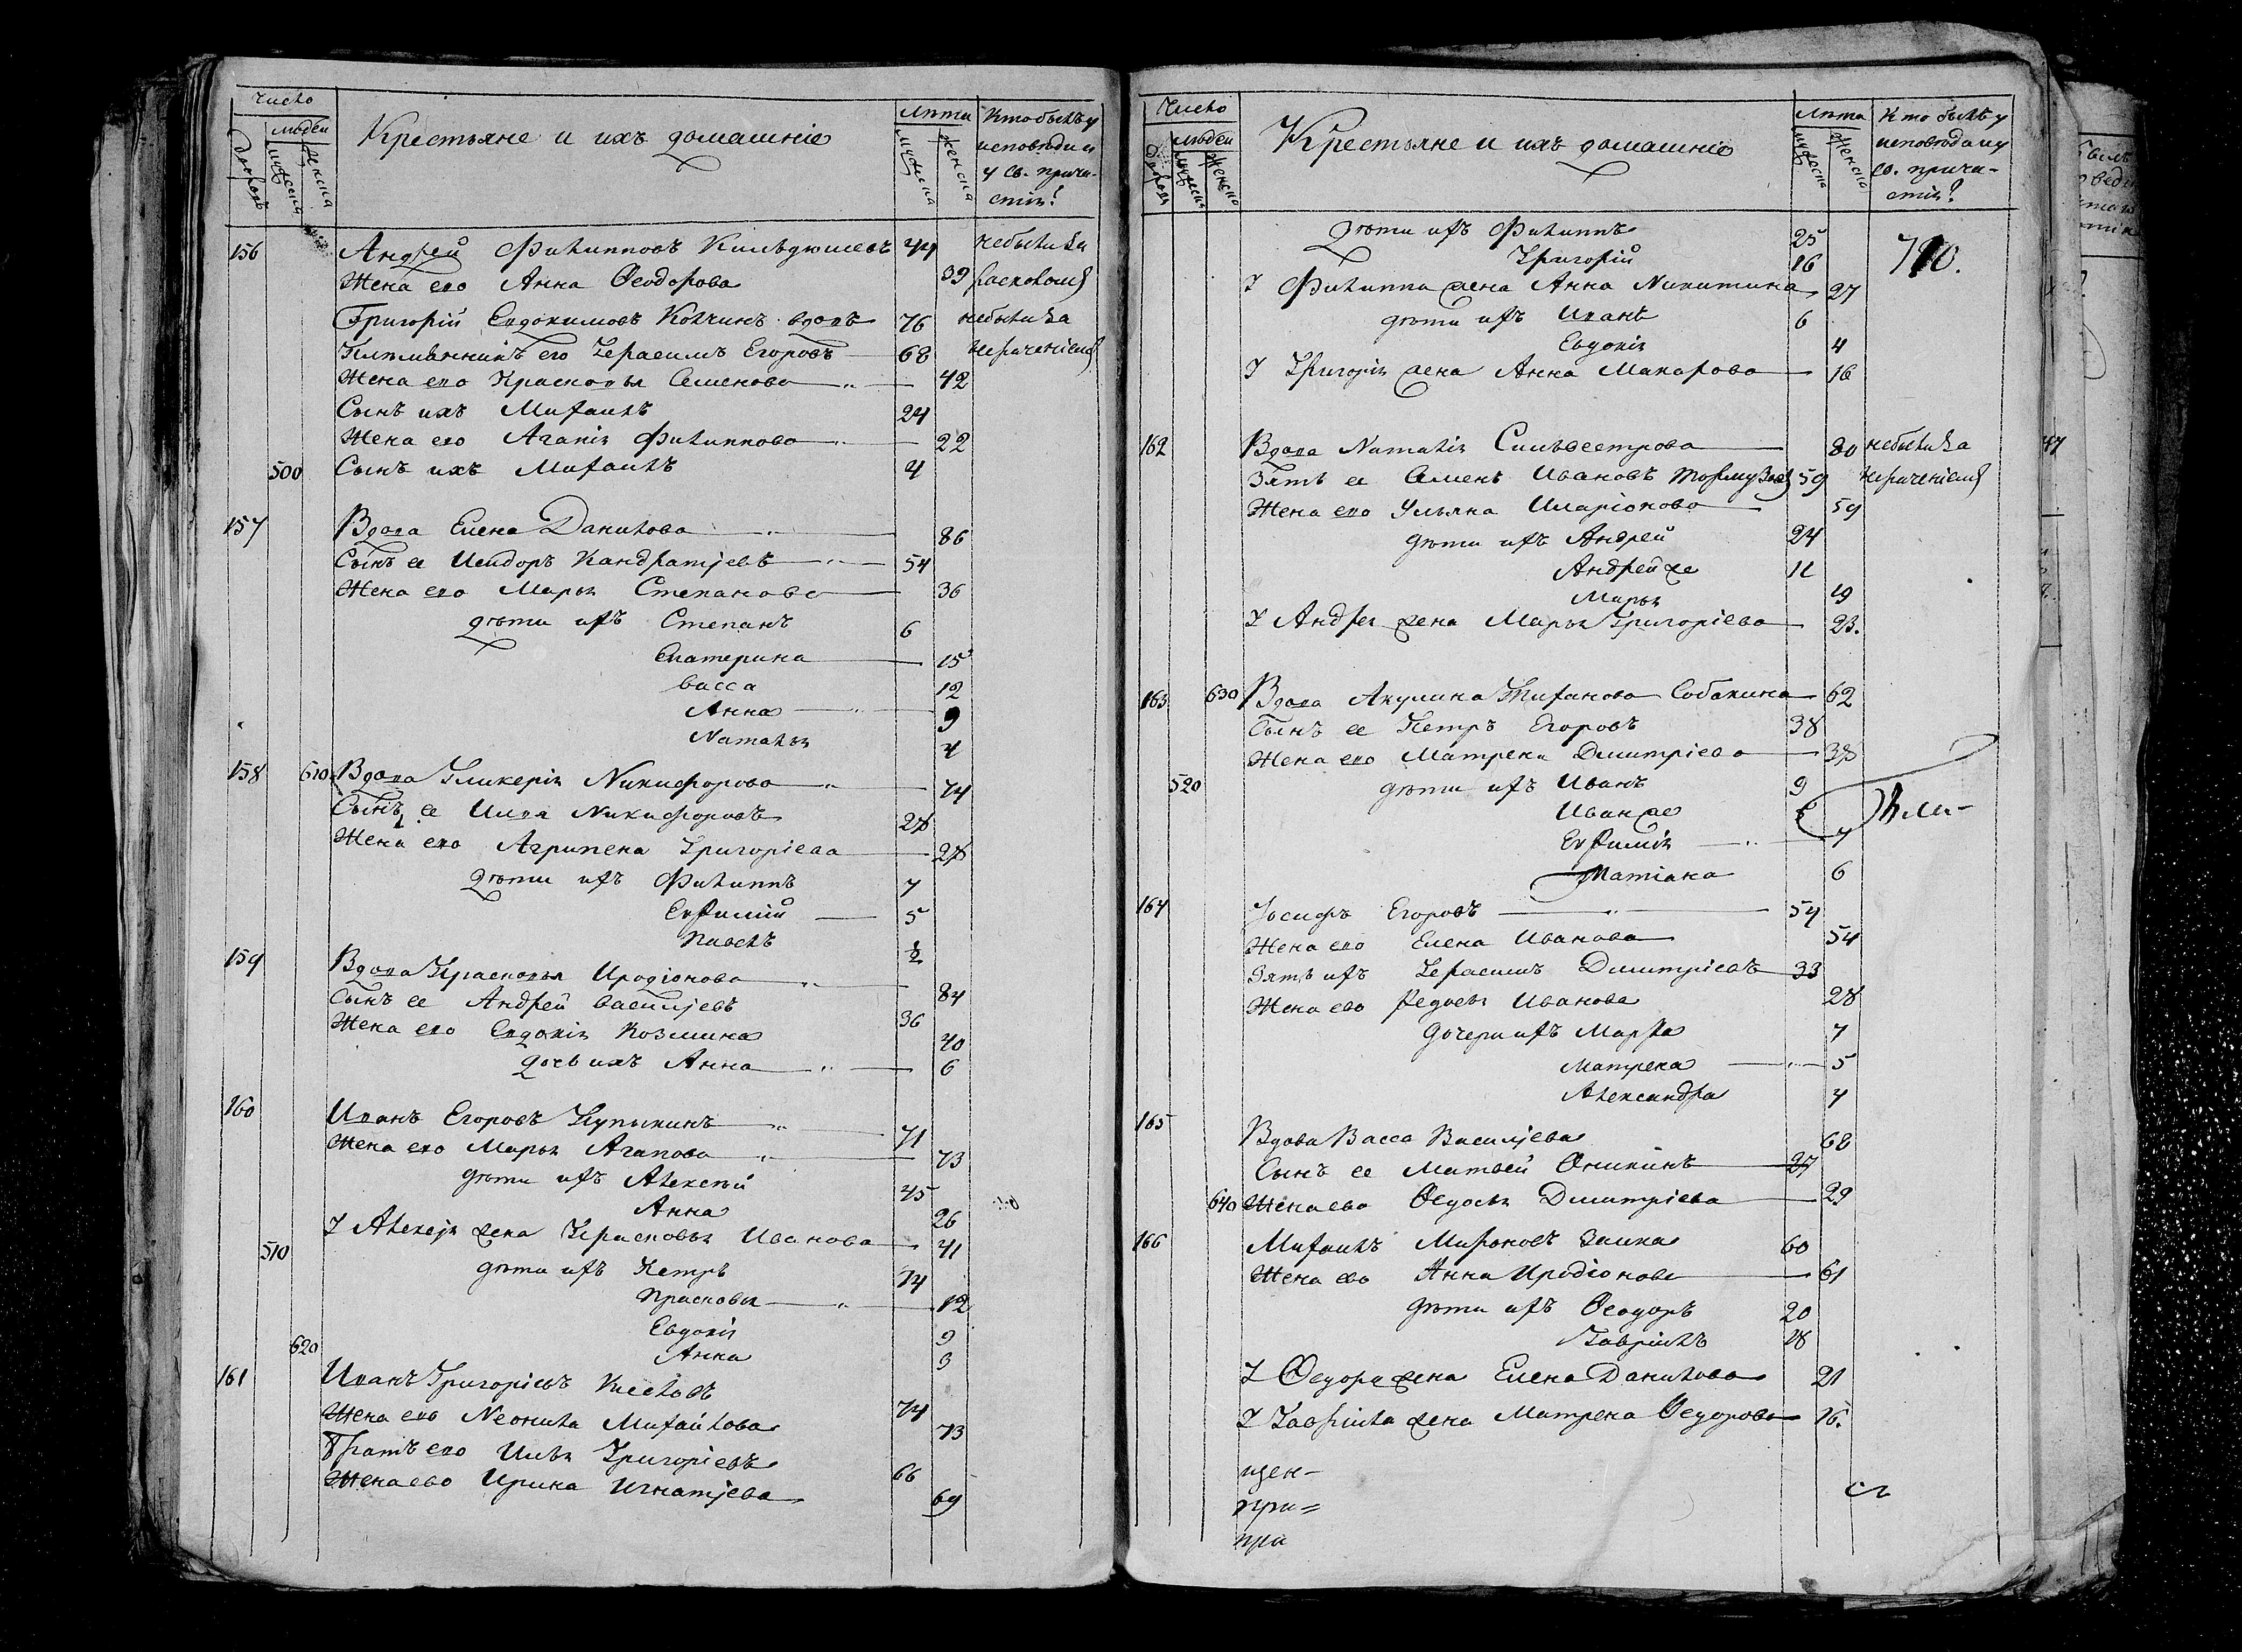 Число
людей
дворовъ
мужеска
женска
Крестьяне и ихъ домашніе
лѣта
мужеска
женска
Кто былъ у
исповѣди и
у св. прича-
стія?
156 Андрей Филипповъ 44 небыли за
Жена его Анна Ѳеодорова 39 расколомъ
Григорій Евдокимовъ Колчинъ вдовъ 76 небыли за
Племянникъ его Герасимъ Егоровъ 68 нерачениемъ
Жена его Прасковья Семенова 42
Сынъ ихъ Михаилъ 24
Жена его Агапія Филиппова 22
500 Сынъ ихъ Михаилъ 4
157 Вдова Елена Данилова 86
Сынъ ее Исидоръ Кандратьевъ 54
Жена его Марья Степанова 36
дѣти ихъ Степанъ 6
Екатерина 15
Васса 12
Анна 9
Наталья 4
158 610 Вдова Гликерія Никифорова 74
Сынъ ее Никифоровъ 28
Жена его Агрипена Григоріева 28
дѣти ихъ Филиппъ 7
Евфимій 5
Павелъ ½
159 Вдова Прасковья Иродіонова 84
Сынъ ее Андрей Васильевъ 36
Жена его Евдокія Козмина 40
дочь ихъ Анна 6
160 Иванъ Егоровъ Купыкинъ 71
Жена его Марья Агапова 73
дѣти ихъ Алексѣй 45
Анна 26
У Алексѣя жена Прасковья Иванова 41
510 дѣти ихъ Петръ 14
Прасковья 12
Евдокія 9
620 Анна 3
161 Иванъ Григорьевъ 74
Жена его Неонила Михайлова 73
Братъ его Илья Григоріевъ 66
Жена ево Ирина Игнатьева 69
Число
людей
дворовъ
мужеска
женска
Крестьяне и ихъ домашніе
лѣта
мужеска
женска
Кто былъ у
исповѣди и у
св. прича-
стія?
дѣти ихъ Филиппъ 25
Григорій 16
У Филиппа жена Анна Никитина 27
дѣти ихъ Иванъ 6
Евдокія 4
У Григорія жена Анна Макарова 16
162 Вдова Наталія Сильвестрова 80 небыли за
Зять ее Семенъ Ивановъ 59 нерачениемъ
Жена его Ульяна Иларіонова 59
дѣти ихъ Андрей 24
Андрей же 11
Марья 19
У Андрея жена Марья Григоріева 23.
163 630 Вдова Акулина Собакина 62
Сынъ ее Петръ Егоровъ 38
Жена его Матрена Дмитріева 38
520 дѣти ихъ Иванъ 9
Иванъ же
Евфимія 7
Татіана 6
164 Іосифъ Егоровъ 54
Жена его Елена Иванова 54
Зять ихъ Герасимъ Дмитріевъ 33
Жена ево Федосья Иванова 28
дочери ихъ Марфа 7
Матрена 5
Александра 4
165 Вдова Васса Васильева 68
Сынъ ее Матвей Оникинъ 27
640 Жена ево Ѳедосья Дмитріева 29
166 Михаилъ Мироновъ Заика 60
Жена ево Анна Иродіонова 61
дѣти ихъ Ѳеодоръ 20
Гавріилъ 18
У Ѳедора жена Елена Данилова 21
У Гавріила жена Матрена Ѳедорова 16.
щен-
при=
при